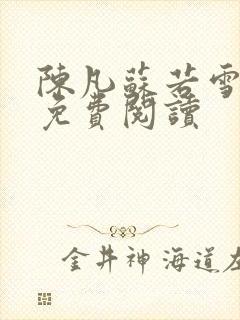 陳凡蘇若雪
免費閱讀
金井神海道左